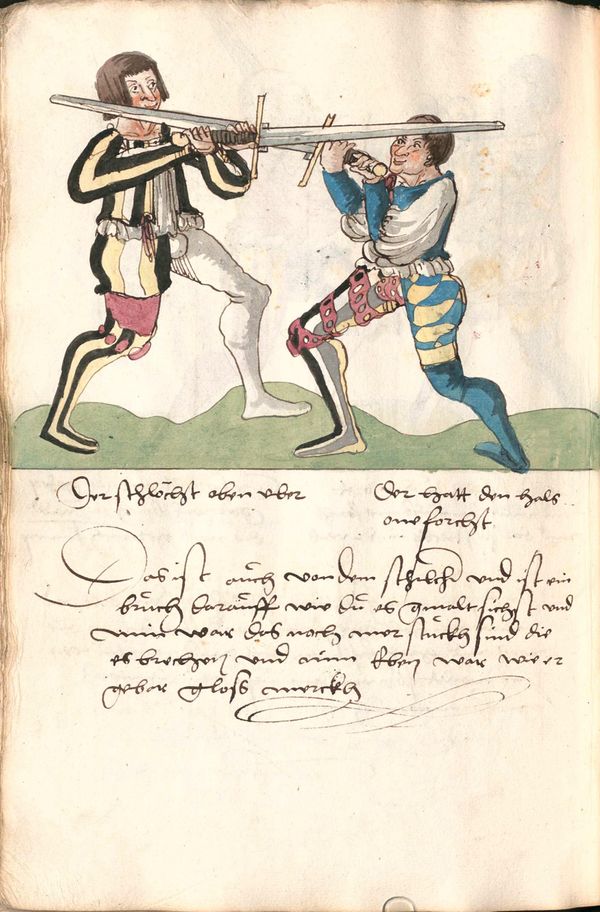 Der schlöcht oben vber
Der hatt den hals
one forcht
Das ist aüch von dem schilher vnd ist ein
brüch daraüff wie dü es gmalt sichst vnd
nim war das noch mer stückh sind die
es brechen vnd nim Eben war wie er
gebar gloss merckh